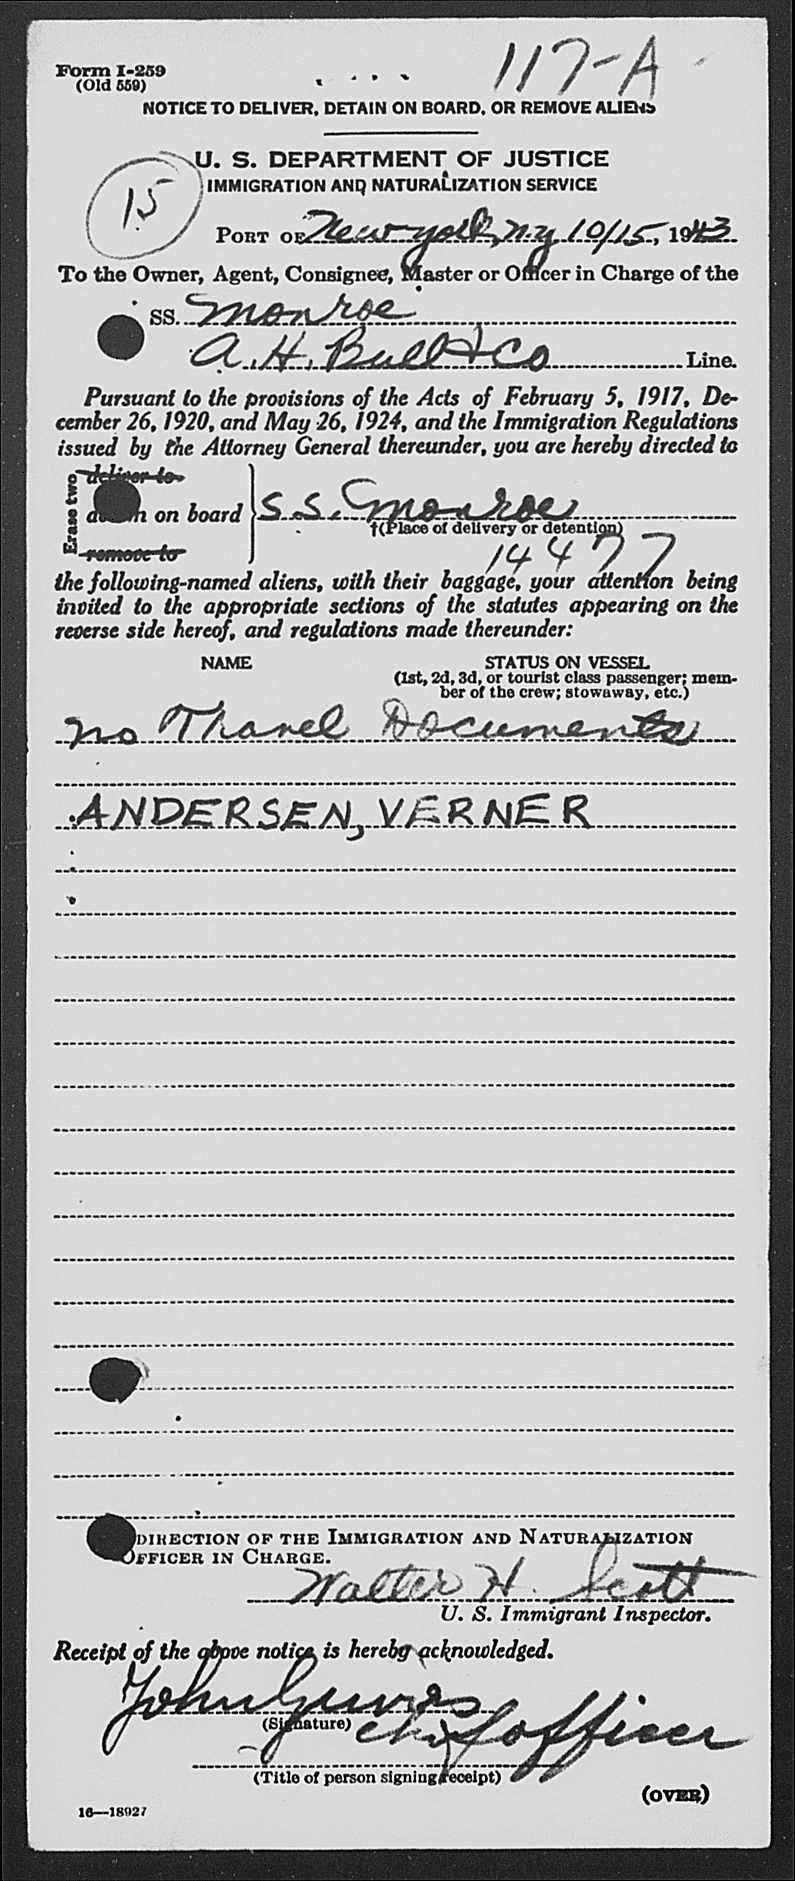 117-A
Form I-259
(Old 559)
NOTICE TO DELIVER, DETAIN ON BOARD, OR REMOVE ALIENS
U. S. DEPARTMENT OF JUSTICE
15
IMMIGRATION AND NATURALIZATION SERVICE
PORT OF New York, N.Y. 10/15, 1943
To the Owner, Agent, Consignee, Master or Officer in Charge of the
SS. Monroe
A. H. Bull & Co Line.
Pursuant to the provisions of the Acts of February 5, 1917, De-
cember 26, 1920, and May 26, 1924, and the Immigration Regulations
issued by the Attorney General thereunder, you are hereby directed to
Erase two
deliver to
detain on board S.S. Monroe
†(Place of delivery or detention)
remove to
14477
the following-named aliens, with their baggage, your attention being
invited to the appropriate sections of the statutes appearing on the
reverse side hereof, and regulations made thereunder:
NAME STATUS ON VESSEL
(1st, 2d, 3d, or tourist class passenger; mem-
ber of the crew; stowaway, etc.)
No Travel Documents
ANDERSEN, VERNER
DIRECTION OF THE IMMIGRATION AND NATURALIZATION
OFFICER IN CHARGE.
Walter H. Scott
U. S. Immigrant Inspector.
Receipt of the above notice is hereby acknowledged.
John
(Signature) Chief officer
(Title of person signing receipt)
(OVER)
16—18927